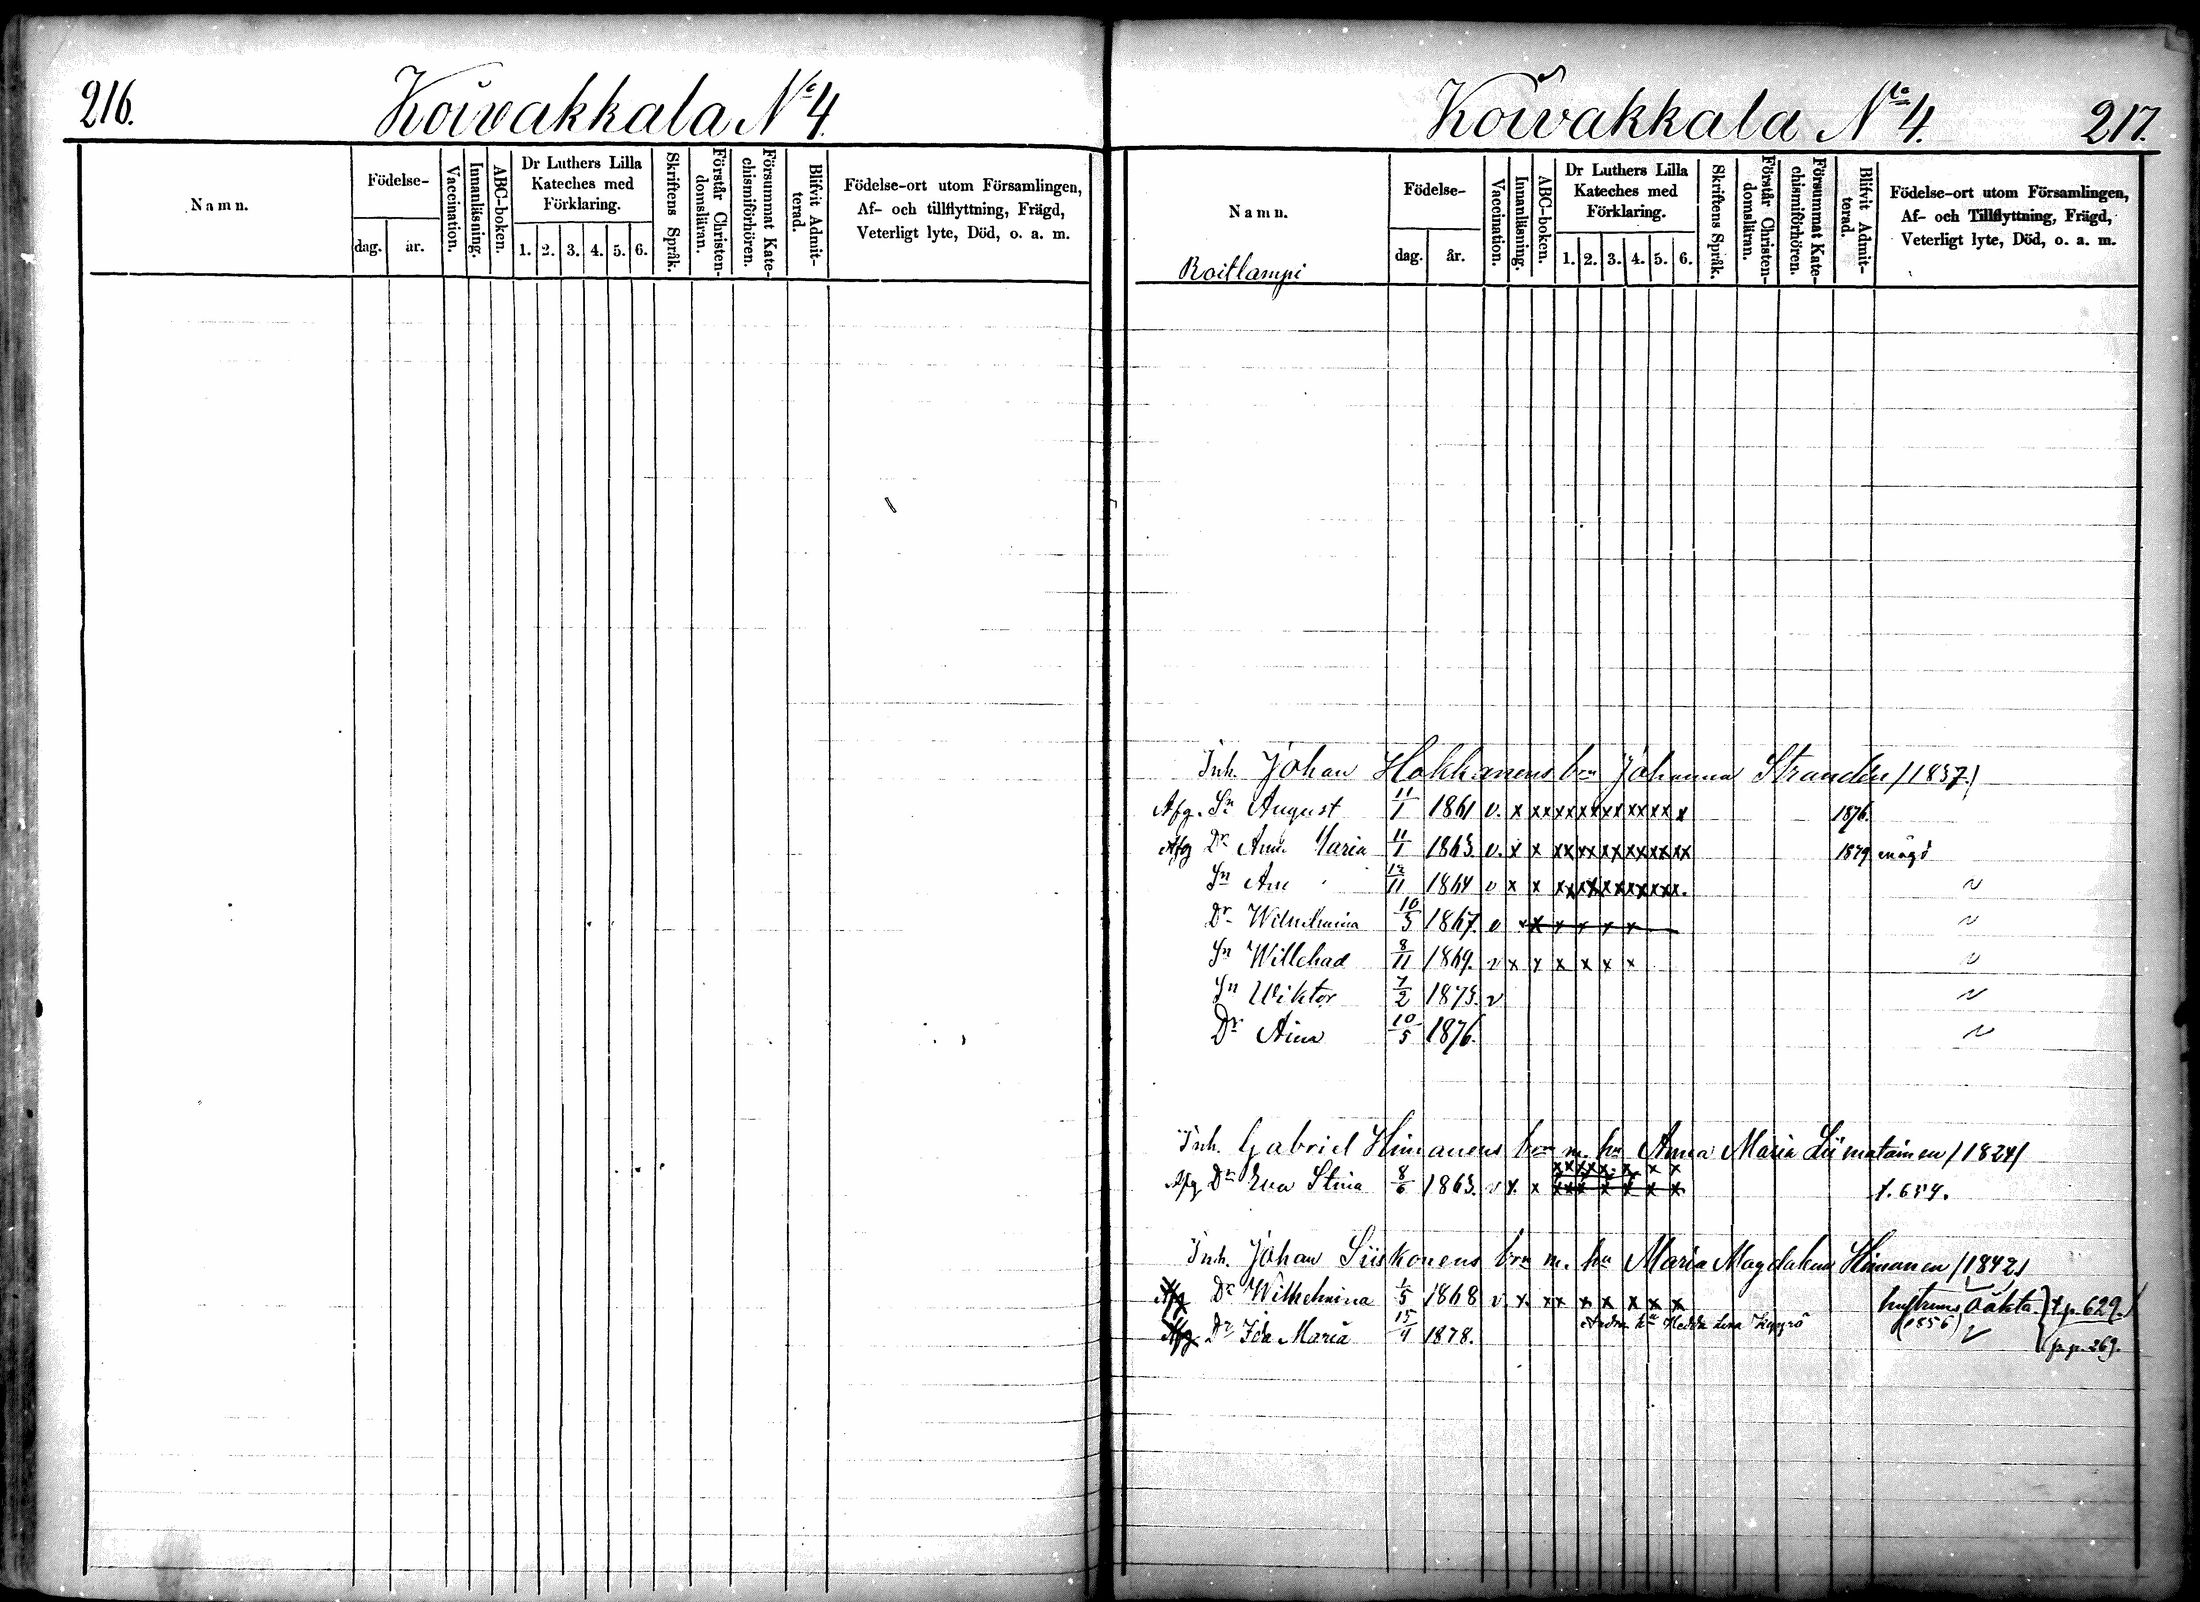 216. Koivakkala No 4.
Namn. Födelse- dag. år. Vaccination. Innanläsning. ABC-boken. Dr Luthers Lilla Kateches med Förklaring. 1. 2. 3. 4. 5. 6. Skriftens Språk. Förstår Christendomsläran. Försummat Katechismiförhören. Blifvit Admitterad. Födelse-ort utom Församlingen, Af- och tillflyttning, Frägd, Veterligt lyte, Död, o. a. m.
Koivakkala No 4. 217.
Namn. Födelse- dag. år. Vaccination. Innanläsning. ABC-boken. Dr Luthers Lilla Kateches med Förklaring. 1. 2. 3. 4. 5. 6. Skriftens Språk. Förstår Christendomsläran. Försummat Katechismiförhören. Blifvit Admitterad. Födelse-ort utom Församlingen, Af- och Tillflyttning, Frägd, Veterligt lyte, Död, o. a. m.
Roitlampi
Inh. Johan Hokkanens brn Johanna Stranden /1837/
Afg. Sn August 11/1 1861 v. x xx xx xx xx xx xx x 1876.
Afg Dr Anna Maria 11/1 1863. v. x x xx xx xx xx xx xx 1879
Sn 12/11 1864 v x x xx xx xx xx xx xx
Dr Wilhelmina 10/5 1867. v x x x x x x
Sn Willehad 8/11 1869. v x x x x x x
Sn Wiktor 7/2 1873. v
Dr Aina 10/5 1876.
Inh. Gabriel Himanens brn m. hu Anna Maria Liimatainen /1824/
Afg Dr Eva Stina 8/6 1863. v x. x xxx x x x x t. 654.
Inh. Johan Siiskonens brn m. hu Maria Magdalena Himanen /1842/
Afg Dr Wilhelmina 1/5 1868 v x. xx x x x x x hustruns oäkta. t.p. 629.
Andra hu Hedda Lena (1856)
Afg Dr Ida Maria 15/4 1878. fr p. 269.